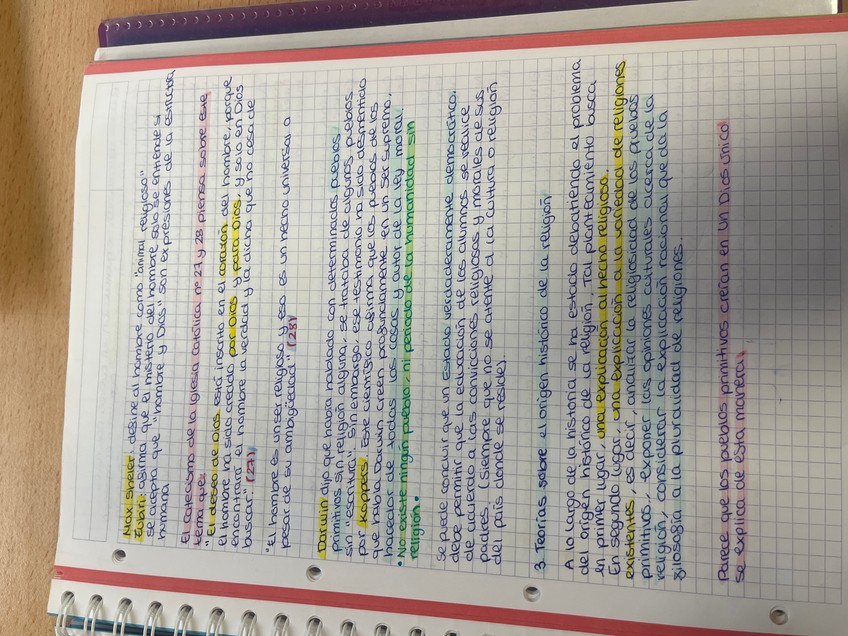 Max Sheler, define al hombre como "animal religioso"
Zubiri: afirma que el misterio del hombre solo se entiende si
se acepta que "hombre y Dios" son expresiones de la estructura
humana
El catecismo de la Iglesia católica nº 27 y 28 piensa sobre este
tema que:
"El deseo de Dios está inscrito en el corazón del hombre, porque
el hombre ha sido creado por Dios y para Dios, y solo en Dios
encontrará el hombre la verdad y la dicha que no cesa de
buscar." (27)
"El hombre es un ser religioso y eso es un hecho universal a
pesar de su ambigüedad" (28)
Darwin dijo que había hablado con determinados pueblos
primitivos sin religión alguna, se trataba de algunos pueblos
sin "escritura". Sin embargo, ese testimonio ha sido desmentido
por Koppess. Este científico afirma que los pueblos de los
que habló Darwin creen profundamente en un ser supremo,
hacedor de todas las cosas y autor de la ley moral.
• No existe ningún pueblo, ni periodo de la humanidad sin
religión.
Se puede concluir que un Estado verdaderamente democrático,
debe permitir que la educación de los alumnos se realice
de acuerdo a las convicciones religiosas y morales de sus
padres. (Siempre que no se atente a la cultura o religión
del país donde se reside).
3. Teorías sobre el origen histórico de la religión
A lo largo de la historia se ha estado debatiendo el problema
del origen histórico de la religión. Tal planteamiento busca
en primer lugar, una explicación al hecho religioso.
En segundo lugar, una explicación a la variedad de religiones
existentes, es decir, analizar la religiosidad de los pueblos
primitivos, exponer las opiniones culturales acerca de la
religión, considerar la explicación racional que da la
filosofía a la pluralidad de religiones.
Parece que los pueblos primitivos creían en un Dios único
se explica de esta manera: